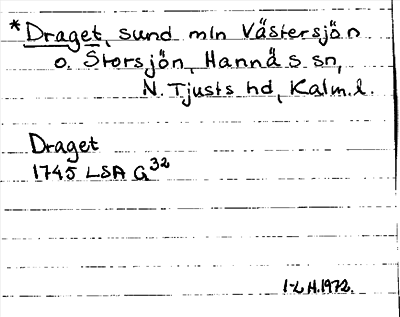 *Draget, sund mln Västersjön
o. Storsjön, Hannäs sn,
N. Tjusts hd, Kalm. l.
Draget
1745 LSA G32
H. 1972.